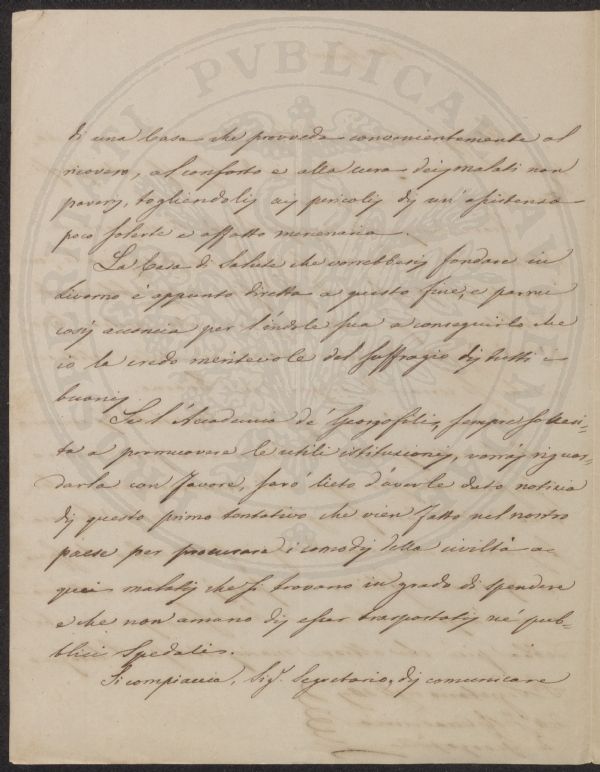 di una Casa che provveda convenientemente al
ricovero, al conforto e alla cura dei malati non
poveri, togliendoli ai pericoli di un' assistenza
poco solerte e affatto mercenaria.
La Casa di Salute che vorrebbesi fondare in
Livorno è appunto diretta a questo fine, e parmi
così acconcia per l'indole sua a conseguirlo che
io la credo meritevole del suffragio di tutti i
buoni.
Se l'Accademia de' Georgofili, sempre solleci-
ta a promuovere le utili istituzioni, vorrà riguar-
darla con favore, sarò lieto d'averle dato notizia
di questo primo tentativo che vien fatto nel nostro
paese per procurare i comodi della civiltà a
quei malati che si trovano in grado di spendere
e che non amano di esser trasportati ne' pub-
blici Spedali.
Si compiaccia, Sig.r Segretario, di comunicare